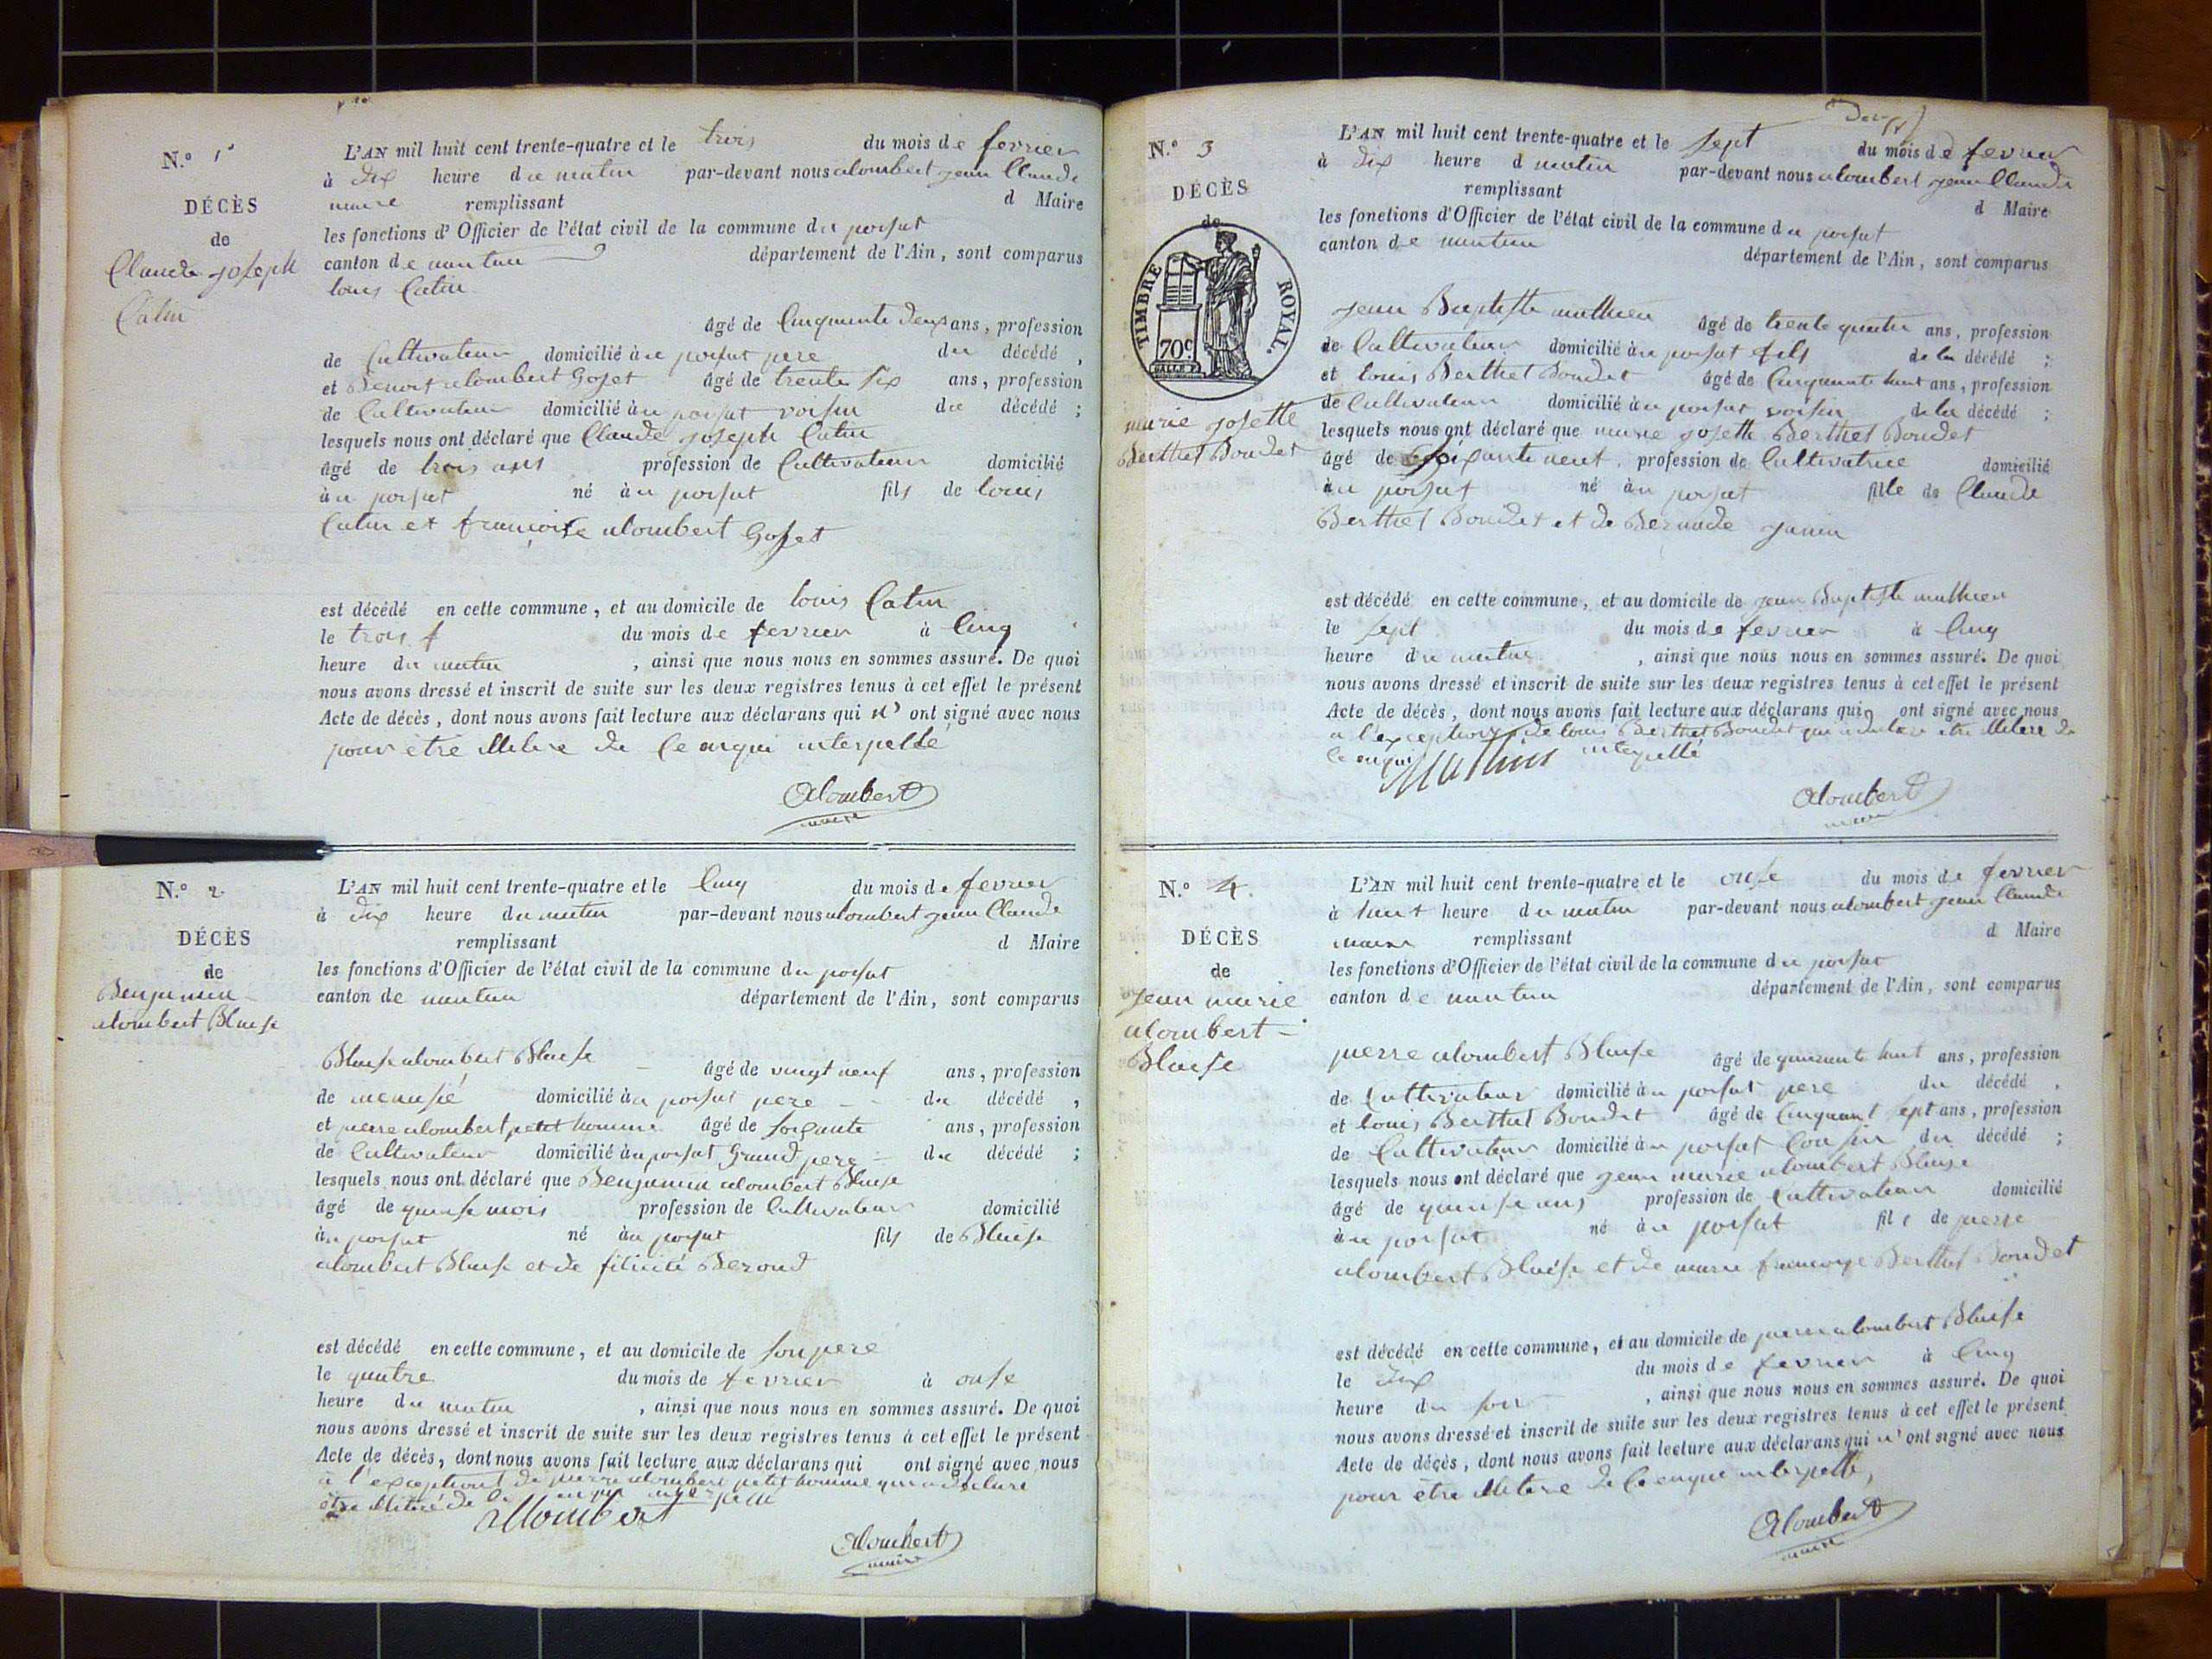 N.o 1er
DÉCÈS
de
Claude joseph
Catin
L'AN mil huit cent trente-quatre et le trois du mois de fevrier
à dix heure du matin par-devant nous alombert jean Claude
maire remplissant d Maire
les fonctions d'Officier de l'état civil de la commune du poisat
canton de nantua département de l'Ain, sont comparus
louis Catin
âgé de Cinquante deux ans, profession
de Cultivateur domicilié au poisat pere du décédé,
et Benoit alombert Goget âgé de trente six ans, profession
de Cultivateur domicilié au poisat voisin du décédé ;
lesquels nous ont déclaré que Claude joseph Catin
âgé de trois ans profession de Cultivateur domicilié
à u poisat né àu poisat fils de louis
Catin et françoise alombert Goget
est décédé en cette commune, et au domicile de louis Catin
le trois du mois de fevrier à Cinq
heure du matin , ainsi que nous nous en sommes assuré. De quoi
nous avons dressé et inscrit de suite sur les deux registres tenus à cet effet le présent
Acte de décès, dont nous avons fait lecture aux déclarans qui n' ont signé avec nous
pour être illitire de Ce anqui interpellé
Alombert
maire
N.o 2
DÉCÈS
de
Benjamin
alombert Blaise
L'AN mil huit cent trente-quatre et le Cinq du mois de fevrier
à dix heure du matin par-devant nous alombert jean Claude
remplissant d Maire
les fonctions d'Officier de l'état civil de la commune du poisat
canton de nantua département de l'Ain, sont comparus
Blaise alombert Blaise âgé de vingt neuf ans, profession
de menusié domicilié àu poisat pere du décédé,
et pierre alombert petit homme âgé de soixante ans, profession
de Cultivateur domicilié àu poisat Grand pere du décédé ;
lesquels nous ont déclaré que Benjamin alombert Blaise
âgé de quinse mois profession de Cultivateur domicilié
àu poisat né àu poisat fils de Blaise
alombert Blaise et de filicité Beroud
est décédé en cette commune, et au domicile de son pere
le quatre du mois de fevrier à onse
heure du matin , ainsi que nous nous en sommes assuré. De quoi
nous avons dressé et inscrit de suite sur les deux registres tenus à cet effet le présent
Acte de décès, dont nous avons fait lecture aux déclarans qui ont signé avec nous
à l'exception de pierre alombert petit homme qui a déclaré
être illitiré de
allombert
Alombert
maire
N.o 3
DÉCÈS
de
TIMBRE ROYAL.
70c
marie josette
Berthet Boudet
L'AN mil huit cent trente-quatre et le sept du mois de fevrier
à dix heure d matin par-devant nous alombert jean Claude
remplissant d Maire
les fonctions d'Officier de l'état civil de la commune du poisat
canton de nantua département de l'Ain, sont comparus
jean Baptiste mathieu âgé de trente quatre ans, profession
de Cultivateur domicilié àu poisat fils de la décédé ;
et louis Berthet Boudet âgé de Cinquante huit ans, profession
de Cultivateur domicilié àu poisat voisin de la décédé ;
lesquels nous ont déclaré que marie josette Berthet Boudet
âgé de soixante neuf. profession de Cultivatrice domicilié
àu poisat né àu poisat fille de Claude
Berthet Boudet et de Bernade janin
est décédé en cette commune, et au domicile de jean Baptiste mathieu
le sept du mois de fevrier à Cinq
heure du matin , ainsi que nous nous en sommes assuré. De quoi
nous avons dressé et inscrit de suite sur les deux registres tenus à cet effet le présent
Acte de décès, dont nous avons fait lecture aux déclarans qui ont signé avec nous
a l'exception de louis Berthet Boudet qui a déclaré être illitire de
Ce anqui interpellé
Mathieu
Alombert
maire
N.o 4.
DÉCÈS
de
jean marie
alombert
Blaise
L'AN mil huit cent trente-quatre et le onse du mois de fevrier
à huit heure du matin par-devant nous alombert jean Claude
maire remplissant d Maire
les fonctions d'Officier de l'état civil de la commune du poisat
canton de nantua département de l'Ain, sont comparus
pierre alombert Blaise âgé de quarante huit ans, profession
de Cultivateur domicilié àu poisat pere du décédé,
et louis Berthet Boudet âgé de Cinquant sept ans, profession
de Cultivateur domicilié àu poisat Cousin du décédé ;
lesquels nous ont déclaré que jean marie alombert Blaise
âgé de quinse ans profession de Cultivateur domicilié
àu poisat né àu poisat fils de pierre
alombert Blaise et de marie françoise Berthet Boudet
est décédé en cette commune, et au domicile de pierre alombert Blaise
le dix du mois de fevrier à Cinq
heure du soir , ainsi que nous nous en sommes assuré. De quoi
nous avons dressé et inscrit de suite sur les deux registres tenus à cet effet le présent
Acte de décès, dont nous avons fait lecture aux déclarans qui n' ont signé avec nous
pour être illitire de Ce enqui interpellé,
Alombert
maire